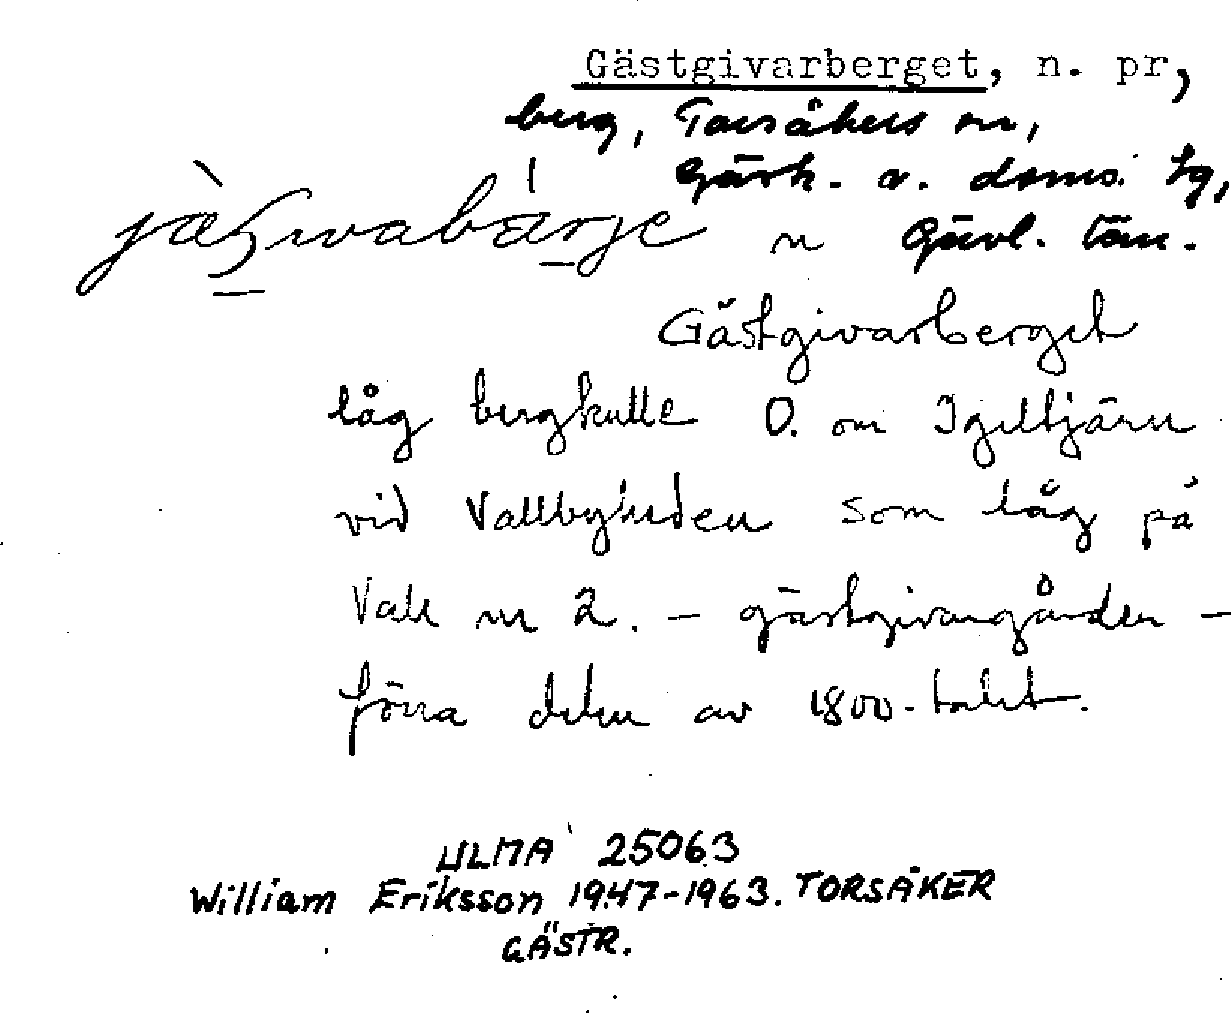 Gästgivarberget, n. pr,
berg, Torsåkers sn,
Gästr. ö. doms. tg,
n Gävl. län.
Gästgivarberget
låg bergkulle O. om Igeltjärn
vid Vallbyheden som låg på
Vall nr 2. – gästgivargården –
förra delen av 1800-talet.
ULMA 25063
William Eriksson 1947-1963. TORSÅKER
GÄSTR.